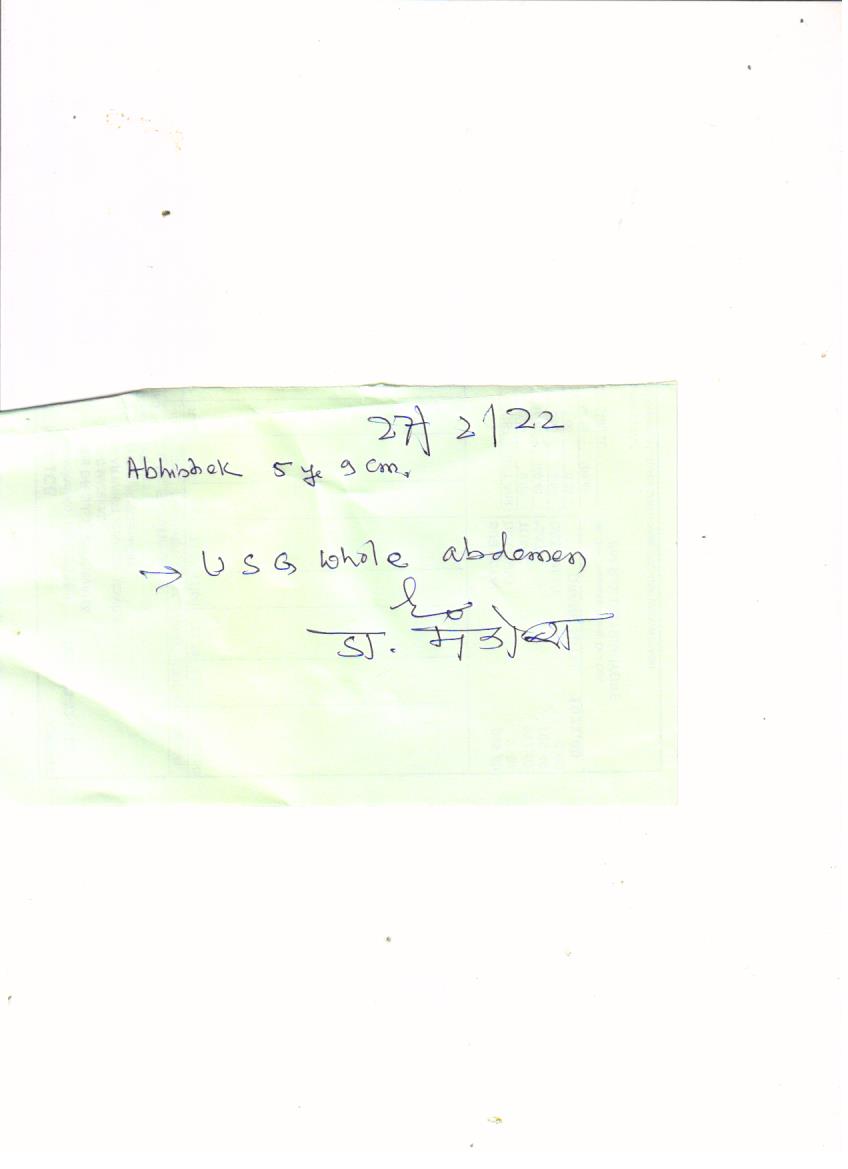 27/2/22
Abhishek 5 ye 9 cm.
→ USG whole abdomen
डा.